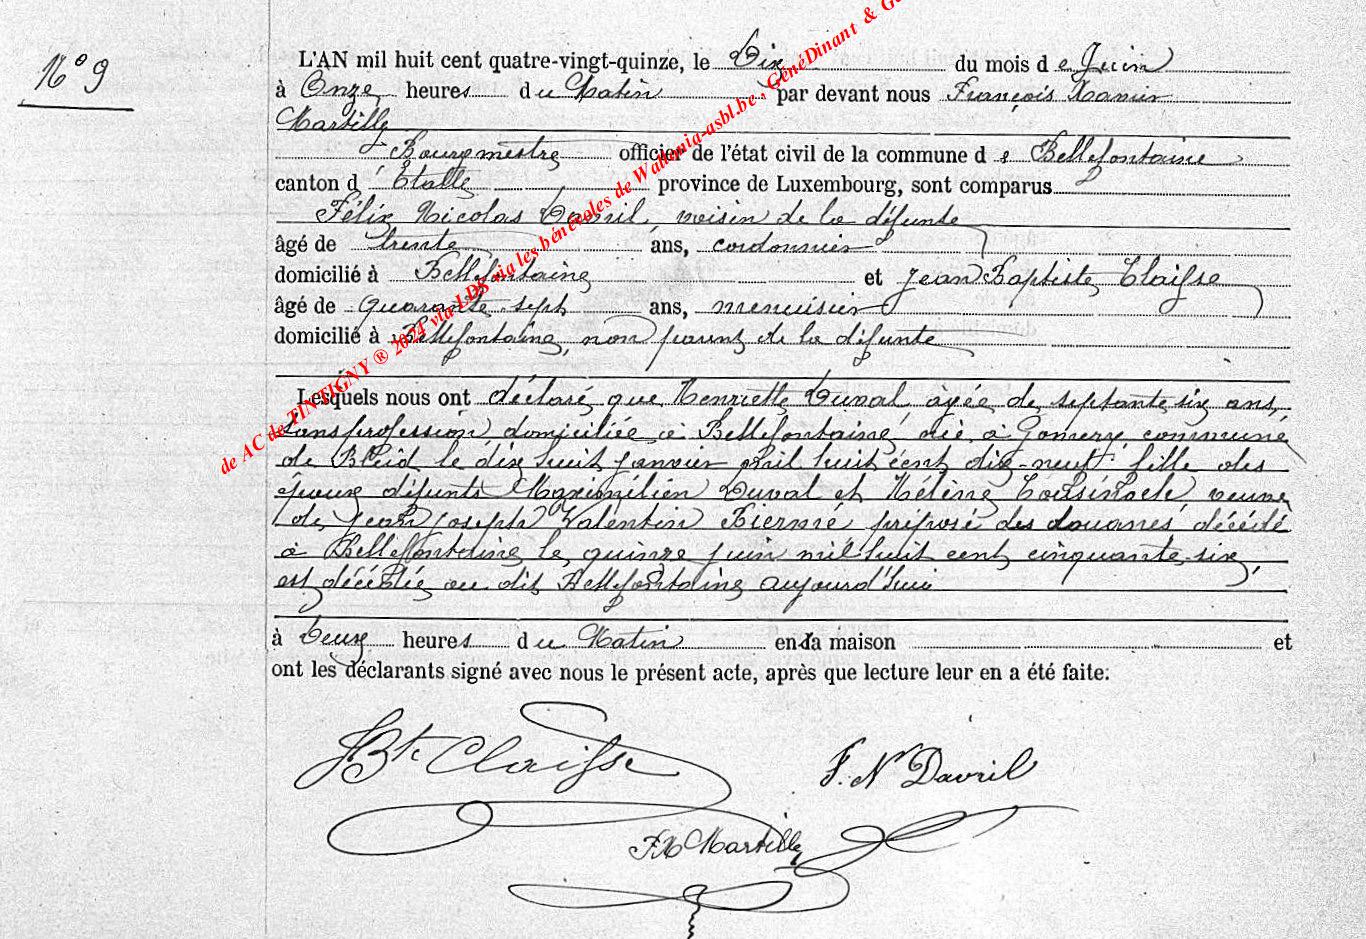 N° 9
L'AN mil huit cent quatre-vingt-quinze, le Dix du mois de Juin
à Onze heures du Matin par devant nous François Xavier
Martilly
Bourgmestre officier de l'état civil de la commune de Bellefontaine
canton d'Etalle province de Luxembourg, sont comparus
Félix Nicolas Davril, voisin de la défunte
âgé de trente ans, cordonnier
domicilié à Bellefontaine et Jean Baptiste Claisse
âgé de quarante sept ans, menuisier
domicilié à Bellefontaine, non parent de la défunte
Lesquels nous ont déclaré que Henriette Duval, âgée de septante six ans,
sans profession, domiciliée à Bellefontaine, née à Gomery, commune
de Bleid le dix huit janvier mil huit cent dix-neuf, fille des
époux défunts Maximilien Duval et Hélène veuve
de Jean Joseph Valentin Bierné, préposé des douanes, décédé
à Bellefontaine le quinze juin mil huit cent cinquante six,
est décédée au dit Bellefontaine aujourd'hui
à Deux heures du Matin en sa maison et
ont les déclarants signé avec nous le présent acte, après que lecture leur en a été faite:
JBte Claisse
F. Nas Davril
FX Martilly
de AC de TINTIGNY ® 2024 via LDS via les bénévoles de Wallonia-asbl.be , GénéDinant & G